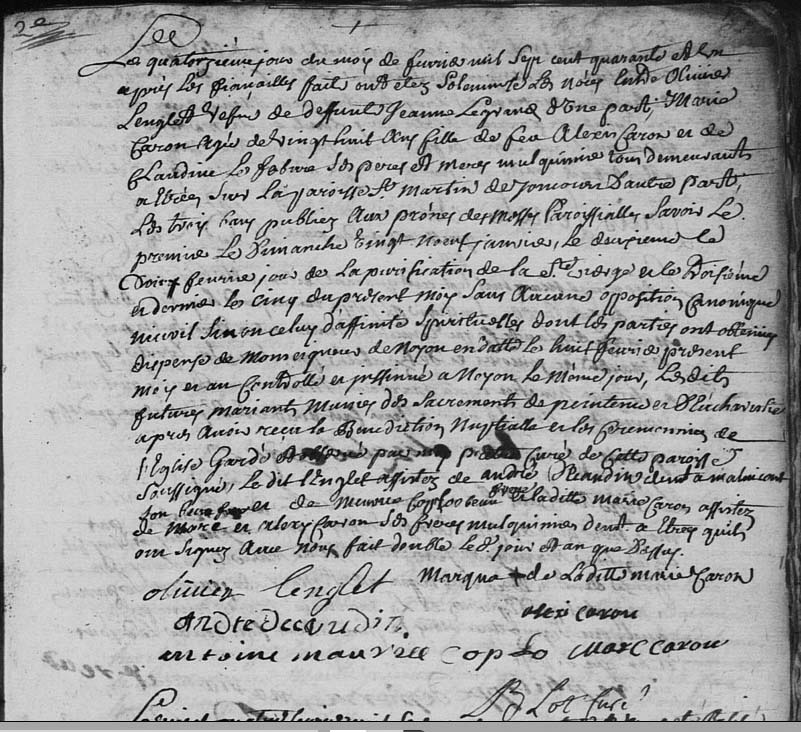 2e
Le quatorsieme jour du mois de fevrie mil sept cent quarante et un
apres les fiancailles fait ont etez solemnise les noces entre Olivier
Lenglet vefve de deffunte Jeanne Legrand d'une part, Marie
Caron agée de vingt huit ans fille de feu Alexis Caron et de
Claudine Le febvre ses peres et meres mulquinie tous demeurants
a Etrées sur la paroisse St. Martin de Joncourt d'autre part,
Les trois bans publiez aux prônes des Messes Paroissialles savoir le
premie le Dimanche vingt neuf janvie, le deusieme le
feurie jour de la purification de la Ste vierge et le troisiéme
et dernie les cinq du present mois sans aucune opposition canonique
ni civil sinon celuy d'affinite spirituelles dont les parties ont obtenües
dispense de Monseigneur de Noyon en datte le huit feurie present
mois et an controllé et insinué a Noyon le même jour, Lesdits
futures mariants munies des sacrements de penitence et d'Eucharistie
apres avoir recu la Benediction Nuptialle et les ceremonies de
l'Eglise Gardé et observé par moy pretre curé de cette paroisse
soussigné, Le dit l'Englet assistez de andré Decaudin dem.t a malincourt
son beau frere et de Maurice Copleo beau frere et laditte marie Caron assistez
de Marc et alexy Caron ses freres mulquinies dem.t a Etrées quils
ont signez avec nous fait double les d. jour et an que Dessus.
olivier lenglet Marque + de Laditte marie Caron
andre decaudin alexi caron
antoine maurice coplo marc carou
Lot Curé